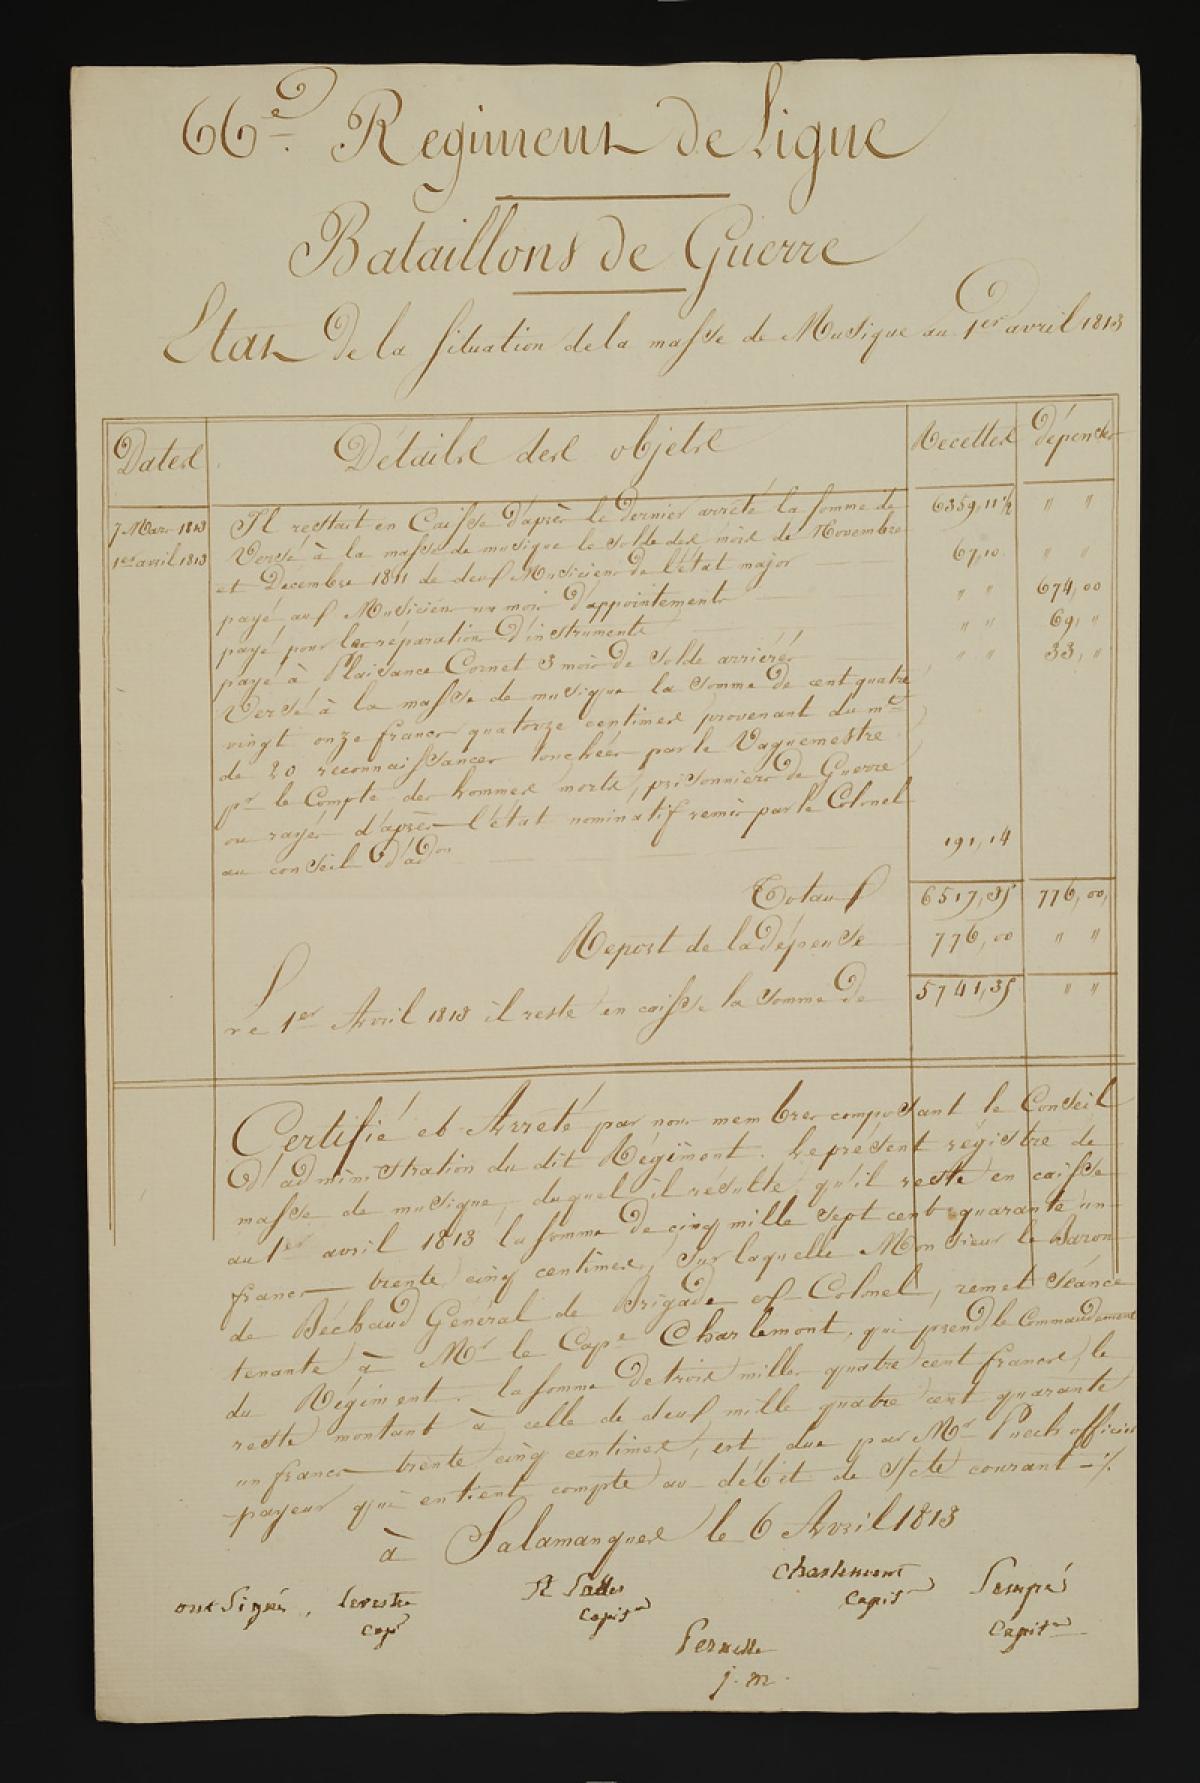 66e Regiment de Ligne
Bataillons de Guerre
Etat de la situation de la masse de Musique au 1er avril 1813
Dates Détails des objets Recettes dépenses
7 Mars 1813 Il restait en Caisse d'après le dernier arrêté la somme de 6359,11 1/2 " "
1er avril 1813 Versé à la masse de musique le solde des mois de Novembre
et Décembre 1811 de deux Musiciens de l'état major 67,10 " "
payé aux Musiciens un mois d'appointements " " 674,00
payé pour les réparations d'instruments " " 69, "
payé à Plaisance Cornet 3 mois de solde arriérés " " 33, "
Versé à la masse de musique la somme de cent quatre
vingt onze francs quatorze centimes provenant du mt
de 20 reconnaissances touchées par le Vaguemestre
pr le Compte des hommes morts, prisonniers de Guerre
ou rayés d'après l'état nominatif remis par le Colonel
au conseil d'adon 191,14
Totaux 6517,35 776,00,
Report de la dépense 776,00 " "
Le 1er Avril 1813 il reste en caisse la somme de 5741,35 " "
Certifié et Arrêté par nous membres composant le Conseil
d'administration du dit Régiment. le présent régistre de
masse de musique, duquel il résulte qu'il reste en caisse
au 1er avril 1813 la somme de cinq mille sept cent quarante un
francs trente cinq centimes, sur laquelle Monsieur le Baron
de Béchaud Général de Brigade ex-Colonel, remet séance
tenante à Mr le Cape Charlemont, qui prend le Commandement
du Régiment. la somme de trois mille quatre cent francs, le
reste montant à celle de deux mille quatre cent quarante
un francs trente cinq centimes, est due par Mr Puech officier
payeur qui en tient compte au débit de s/cte courant -%
à Salamanques le 6 Avril 1813
ont Signés,
capne
capitne
Charlemont
capitne
Sempé
capitne
j. m.